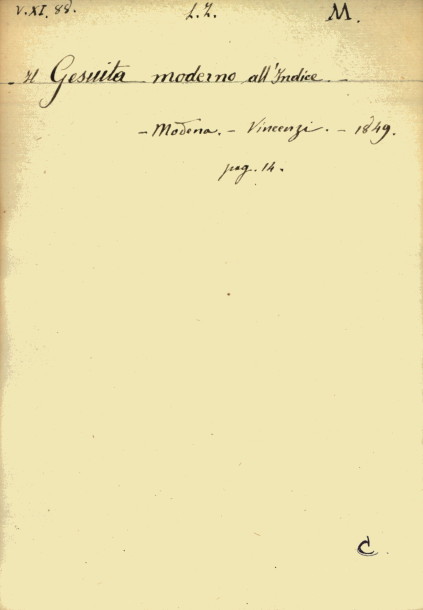 V. XI. 88. L. Z. M.
- Il Gesuita moderno all'Indice. -
- Modena. - Vincenzi. - 1849.
pag. 14.
C